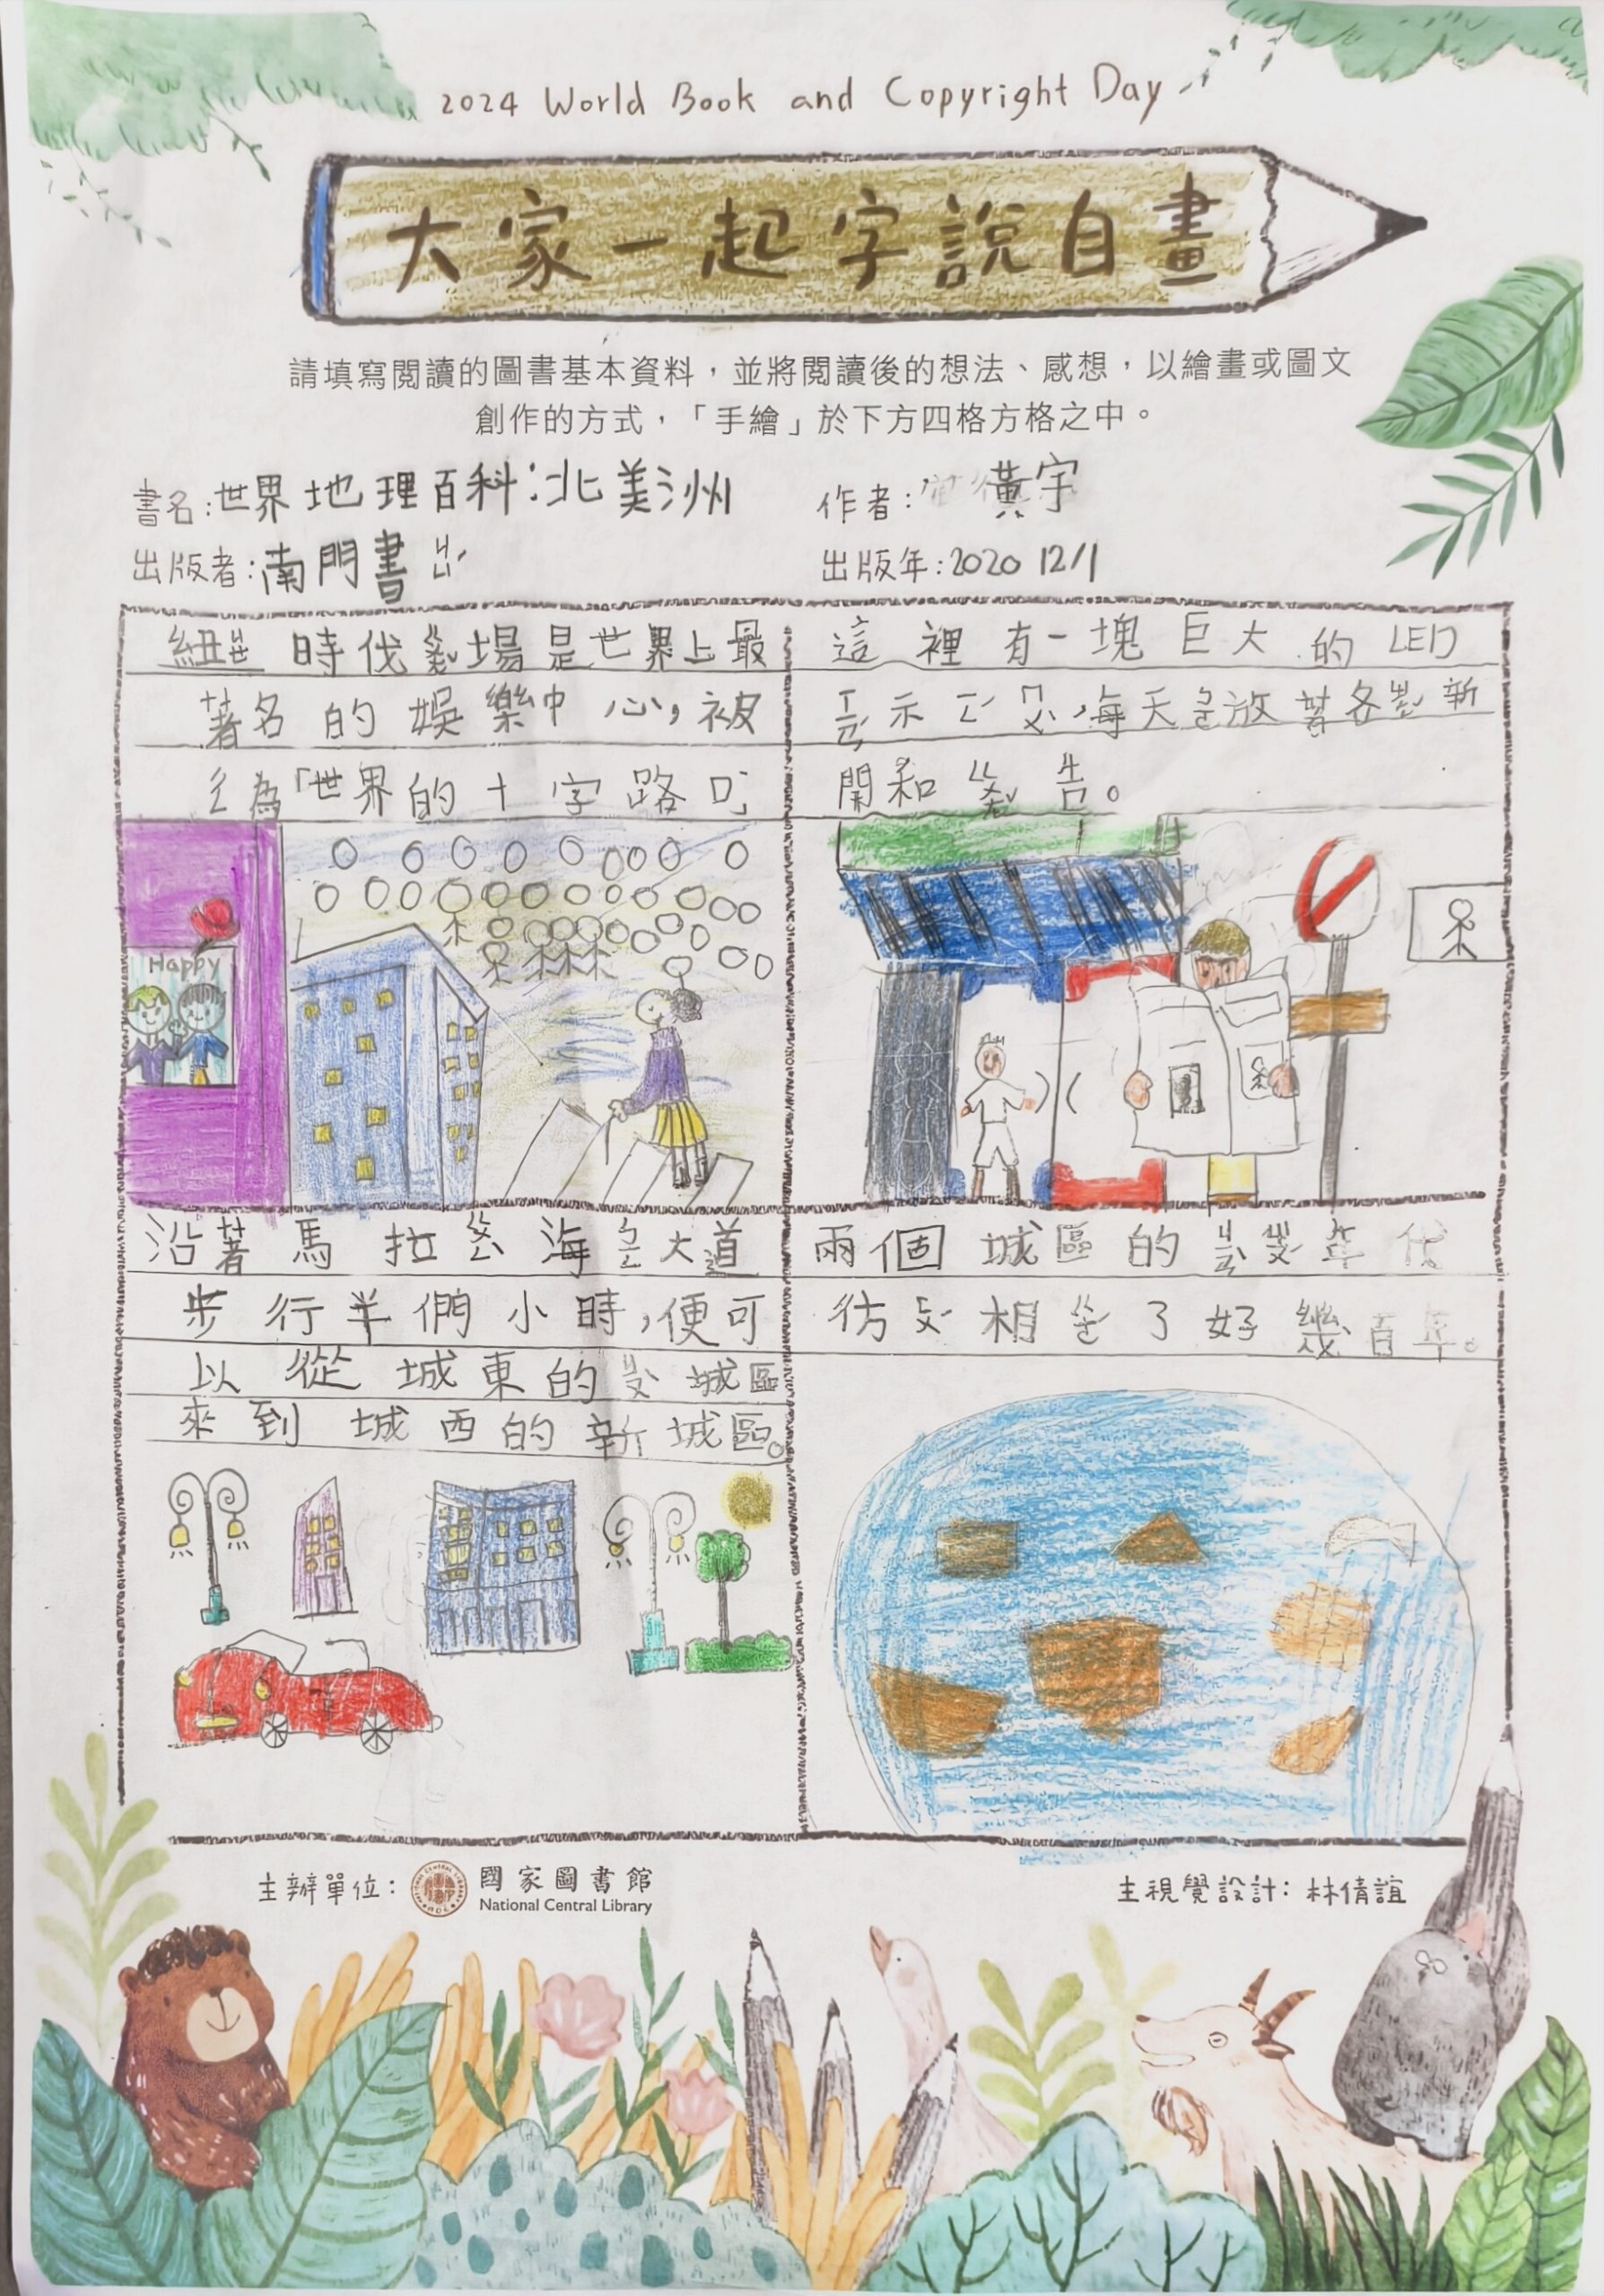 2024 World Book and Copyright Day
大家一起字說自畫
請填寫閱讀的圖書基本資料，並將閱讀後的想法、感想，以繪畫或圖文
創作的方式，「手繪」於下方四格方格之中。
書名:世界地理百科:北美洲
作者: 黃宇
出版者:南門書
出版年:2020 12/1
紐 時伐 場是世界上最
著名的娛樂中心,被
ㄔㄥ為「世界的十字路口」
這裡有一塊巨大的LED
示 ,每天 放著各 新
聞和 告。
Happy
沿著馬拉 海 大道
步行半們小時,便可
以從城東的 城區
來到城西的新城區。
兩個城區的 年代
彷 相 了好幾百年。
主辦單位:
國家圖書館
National Central Library
主視覺設計: 林倩誼